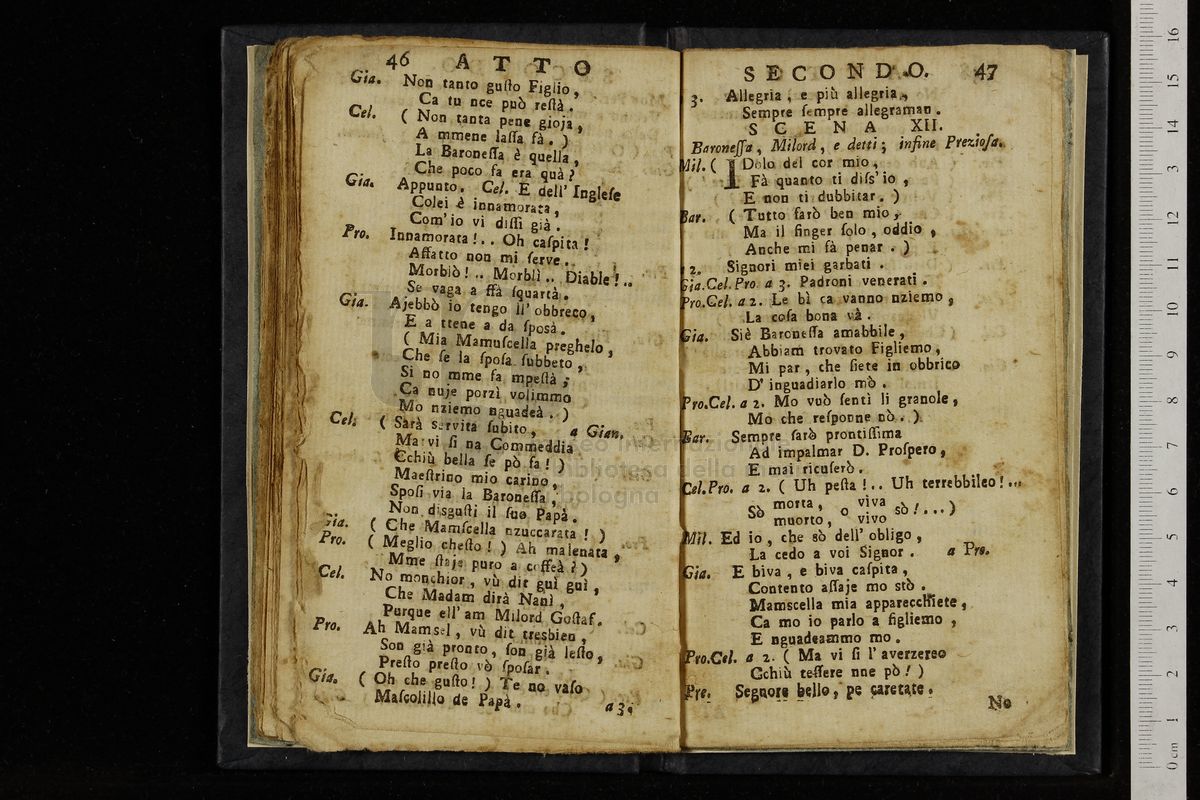 46 ATTO
Gia. Non tanto guſto Figlio,
Ca tu nce può reſtà.
Cel. ( Non tanta pene gioja,
A mmene laſſa fà. )
La Baroneſſa è quella,
Che poco fa era quà?
Gia. Appunto. Cel. E dell' Ingleſe
Colei è innamorata,
Com' io vi diſſi già.
Pro. Innamorata!.. Oh caſpita!
Affatto non mi ſerve..
Morbiò!.. Morblì.. Diable!..
Se vaga a ffà ſquartà.
Gia. Ajebbò io tengo ll' obbreco,
E a ttene a da ſposà.
( Mia Mamuſcella preghelo,
Che ſe la ſpoſa ſubbeto,
Si no mme fa mpeſtà;
Ca nuje porzì volimmo
Mo nziemo nguadeà. )
Cel. ( Sarà servita ſubito, a Gian.
Ma vi ſi na Commeddia
Cchiù bella ſe pò fa! )
Maeſtrino mio carino,
Spoſi via la Baroneſſa,
Non diſguſti il ſuo Papà.
Gia. ( Che Mamſcella nzuccarata! )
Pro. ( Meglio cheſto! ) Ah malenata,
Mme ſtaje puro a coffeà?)
Cel. No monchior, vù dit guì guì,
Che Madam dirà Nanì,
Purque ell' am Milord Goſtaf.
Pro. Ah Mamsel, vù dit tresbien,
Son già pronto, ſon già leſto,
Preſto preſto vò ſpoſar.
Gia. ( Oh che guſto! ) Te no vaſo
Maſcolillo de Papà.
a 3.
SECONDO. 47
3. Allegria, e più allegria,
Sempre ſempre allegraman.
SCENA XII.
Baroneſſa, Milord, e detti; infine Prezioſa.
Mil. ( IDolo del cor mio,
Fà quanto ti diſs' io,
E non ti dubbitar. )
Bar. ( Tutto farò ben mio,
Ma il finger ſolo, oddio,
Anche mi fà penar. )
2. Signori miei garbati.
Gia.Cel.Pro. a 3. Padroni venerati.
Pro.Cel. a 2. Le bì ca vanno nziemo,
La coſa bona và.
Gia. Siè Baroneſſa amabbile,
Abbiam trovato Figliemo,
Mi par, che ſiete in obbrico
D' inguadiarlo mò.
Pro.Cel. a 2. Mo vuò ſentì li granole,
Mo che reſponne nò. )
Bar. Sempre farò prontiſſima
Ad impalmar D. Proſpero,
E mai ricuſerò.
Cel.Pro. a 2. ( Uh peſta!.. Uh terrebbileo!...
Sò morta, o viva sò!...)
muorto, vivo
Mil. Ed io, che sò dell' obligo,
La cedo a voi Signor. a Pro.
Gia. E biva, e biva caſpita,
Contento aſſaje mo stò.
Mamscella mia apparecchiete,
Ca mo io parlo a figliemo,
E nguadeammo mo.
Pro.Cel. a 2. ( Ma vi ſi l' averzereo
Cchiù teſſere nne pò! )
Pre. Segnore bello, pe caretate.
No